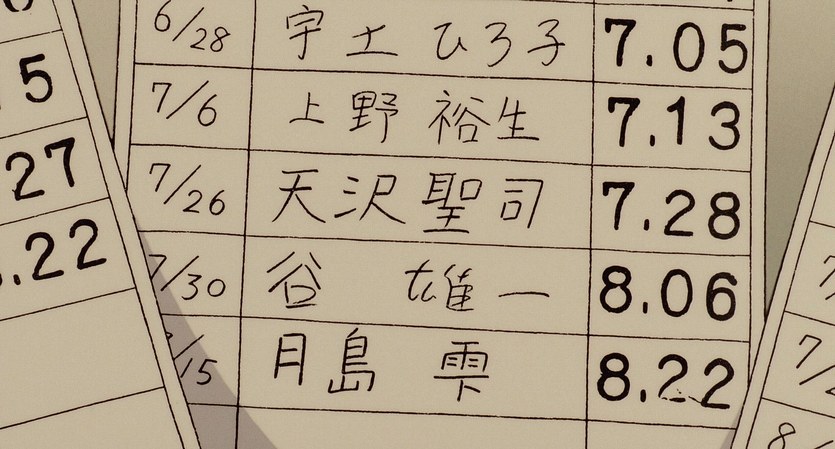 5
27
.22
6/28 宇土 ひろ子 7.05
7/6 上野 裕生 7.13
7/26 天沢聖司 7.28
7/30 谷 雄一 8.06
/15 月島 雫 8.22
7/
8/